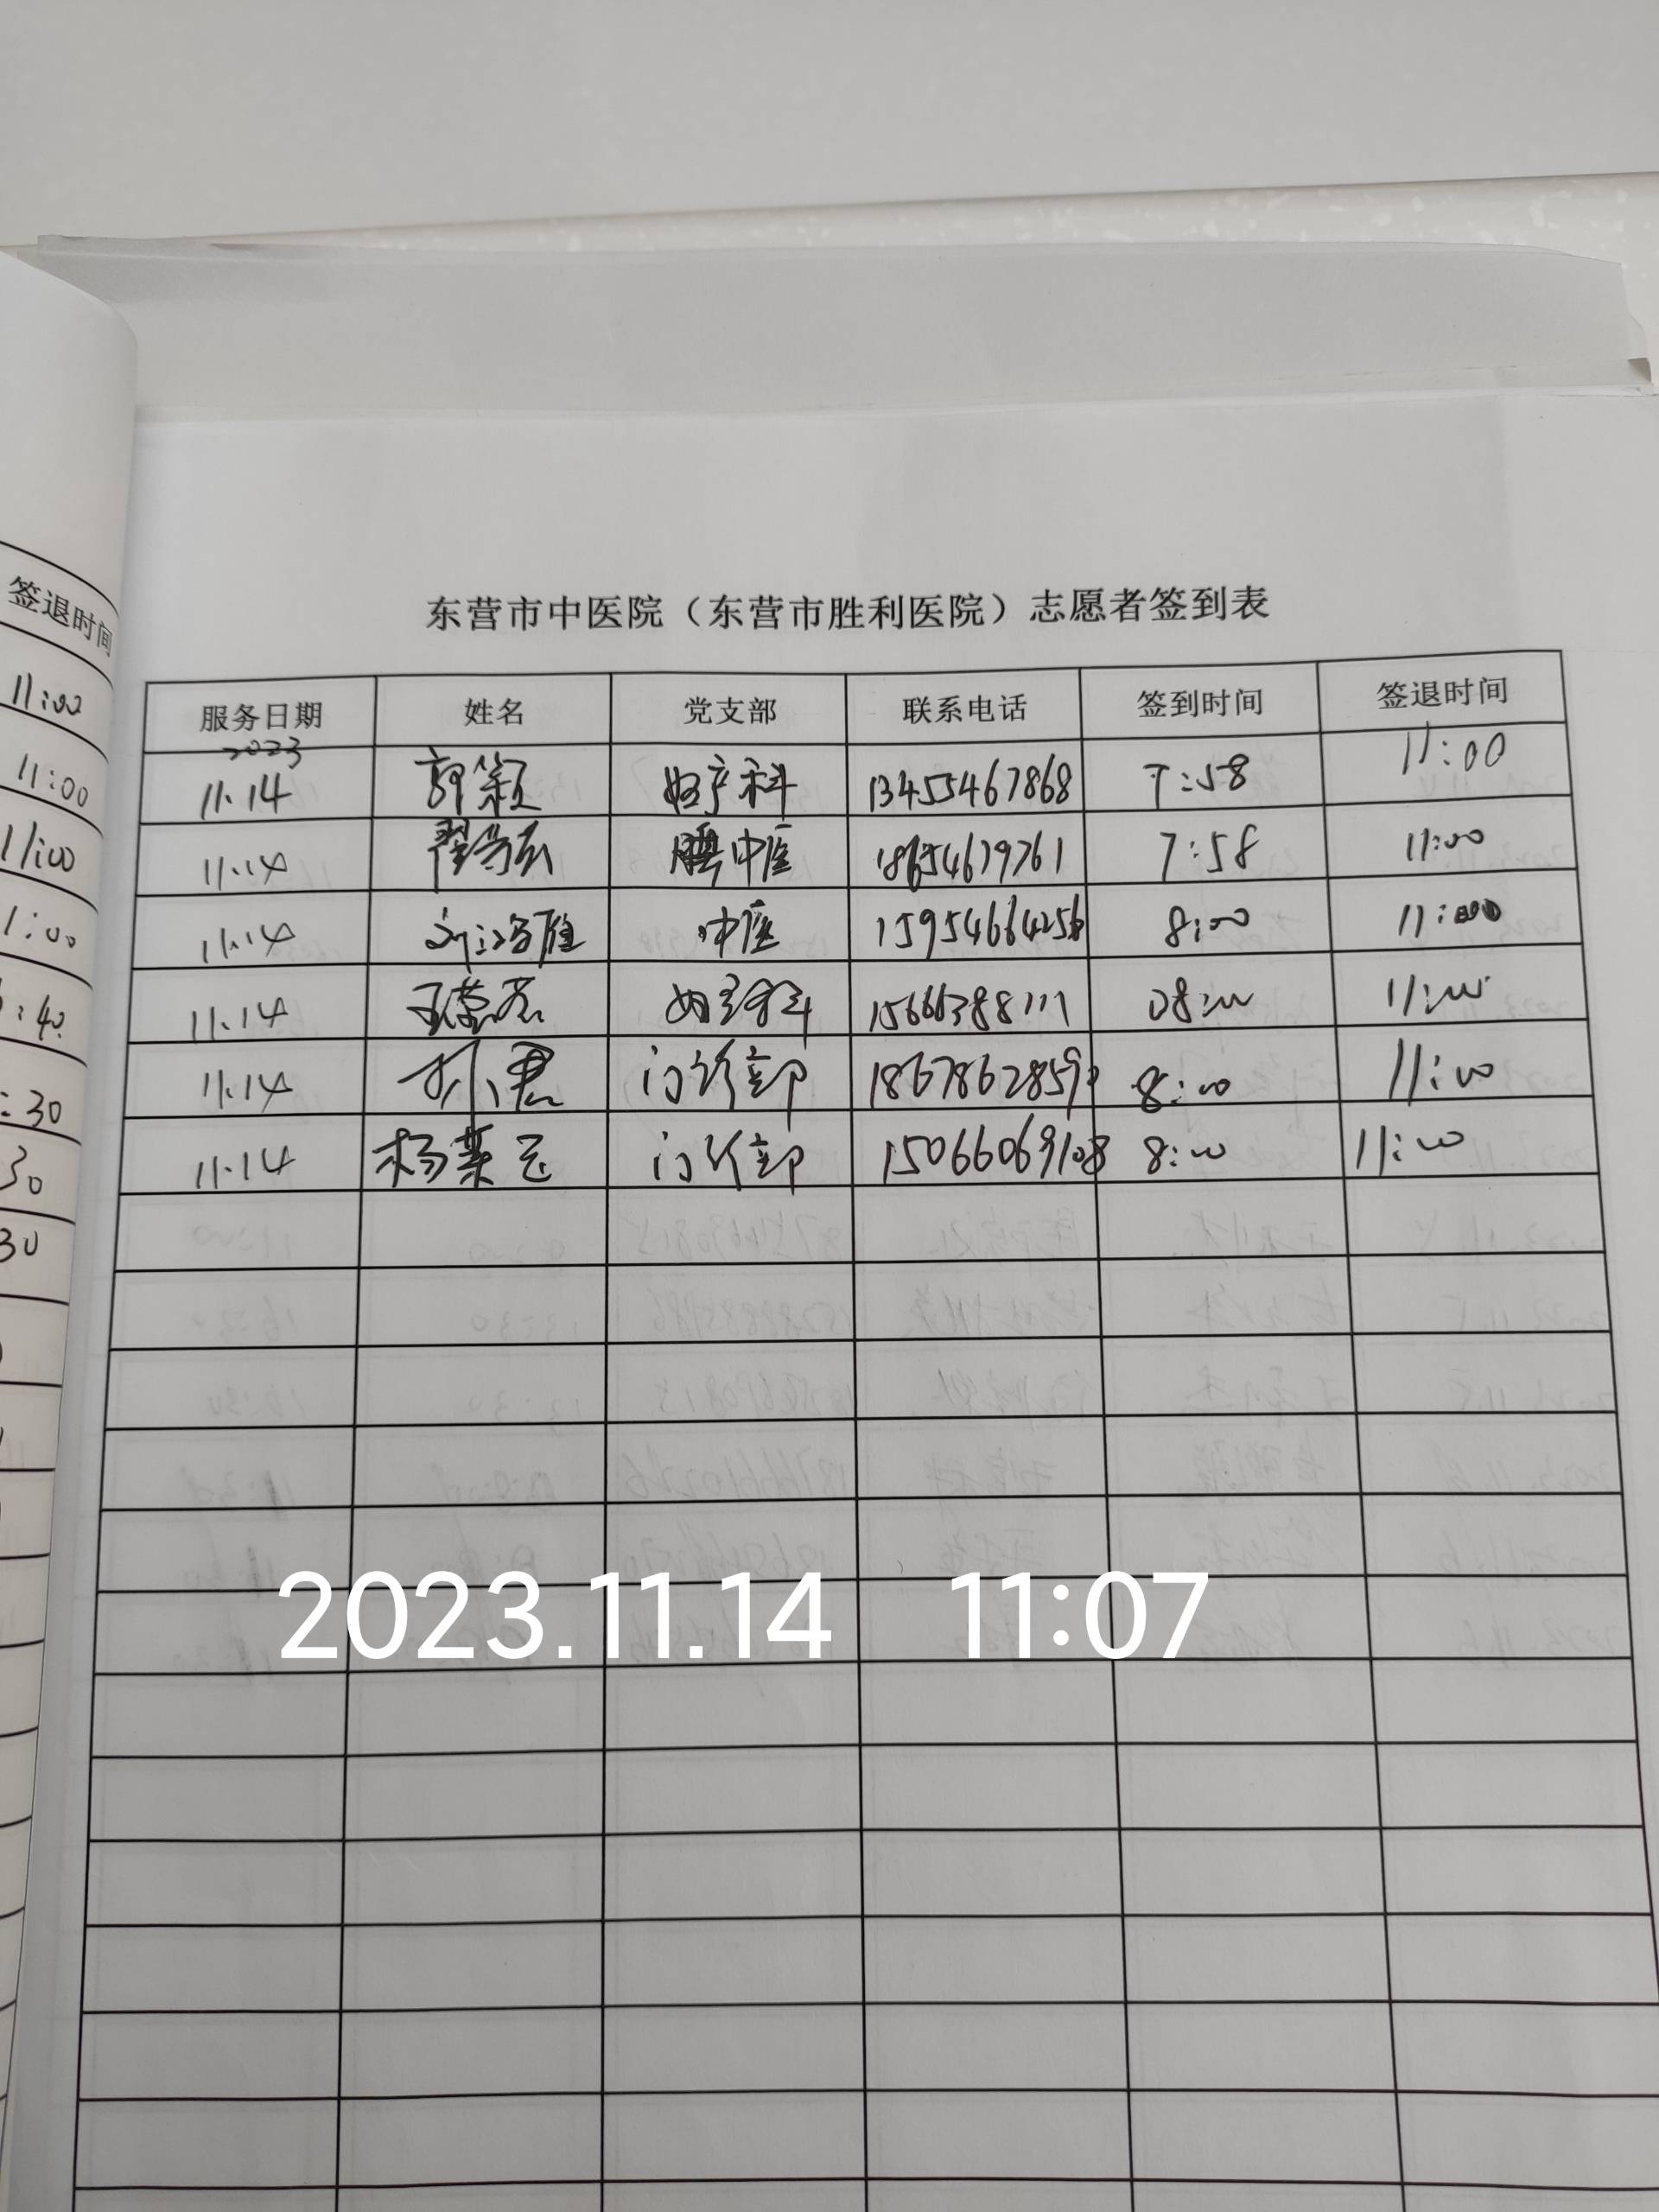 东营市中医院（东营市胜利医院）志愿者签到表
签退时间
11:00
11:00
11:00
1:00
:40
:30
30
30
服务日期 姓名 党支部 联系电话 签到时间 签退时间
2023
11.14 郭颖 妇产科 13455467868 7:58 11:00
11.14 中医 18654679761 7:58 11:00
11.14 中医 15954664256 8:00 11:00
11.14 15666388111 08:00 11:00
11.14 孙君 门诊部 1867862859 8:00 11:00
11.14 杨 门诊部 15066069108 8:00 11:00
2023.11.14 11:07